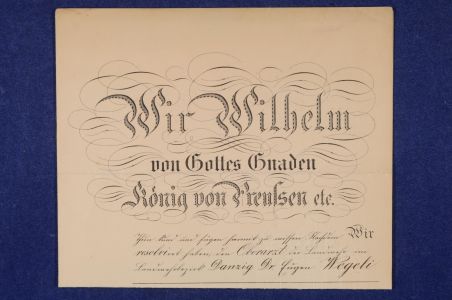 Wir Wilhelm
von Gottes Gnaden
König von Preußen etc.
Thun kund und fügen hiermit zu wissen Nachdem Wir
resolviret haben, den Oberarzt der Landwehr im
Landwehrbezirk Danzig Dr Eugen Wegeli